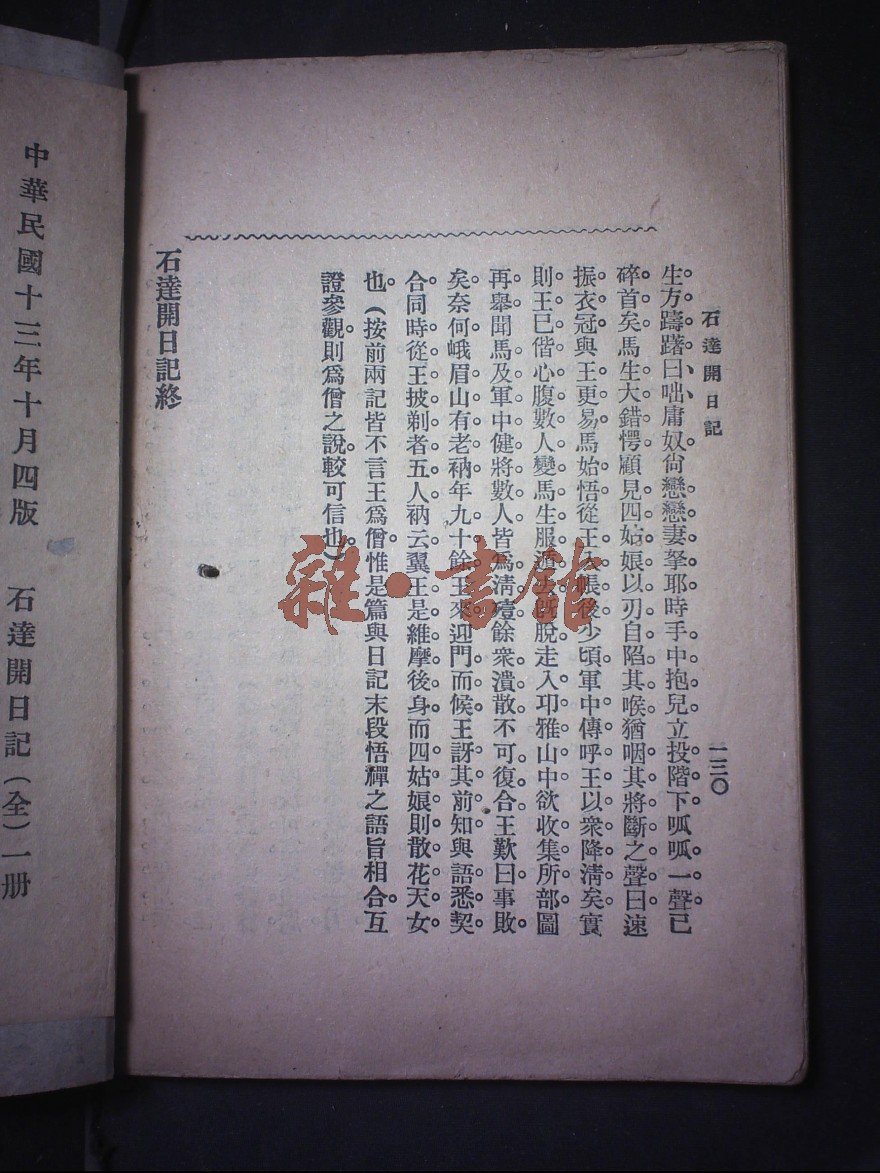 石達開日記
一三〇
生方躊躇曰咄庸奴尙戀戀妻孥耶時手中抱兒立投階下呱呱一聲已
碎首矣馬生大錯愕顧見四姑娘以刃自陷其喉猶咽其將斷之聲曰速
振衣冠與王更易馬始悟從王入帳後少頃軍中傳呼王以衆降淸矣實
則王已偕心腹數人變馬生服遁去旣脫走入邛雅山中欲收集所部圖
再舉聞馬及軍中健將數人皆爲淸殪餘衆潰散不可復合王歎曰事敗
矣奈何峨眉山有老衲年九十餘王來迎門而候王訝其前知與語悉契
合同時從王披剃者五人衲云翼王是維摩後身而四姑娘則散花天女
也(按前兩記皆不言王爲僧惟是篇與日記末段悟禪之語旨相合互
證參觀則爲僧之說較可信也)
石達開日記終
中華民國十三年十月四版 石達開日記(全)一册
雜·書館